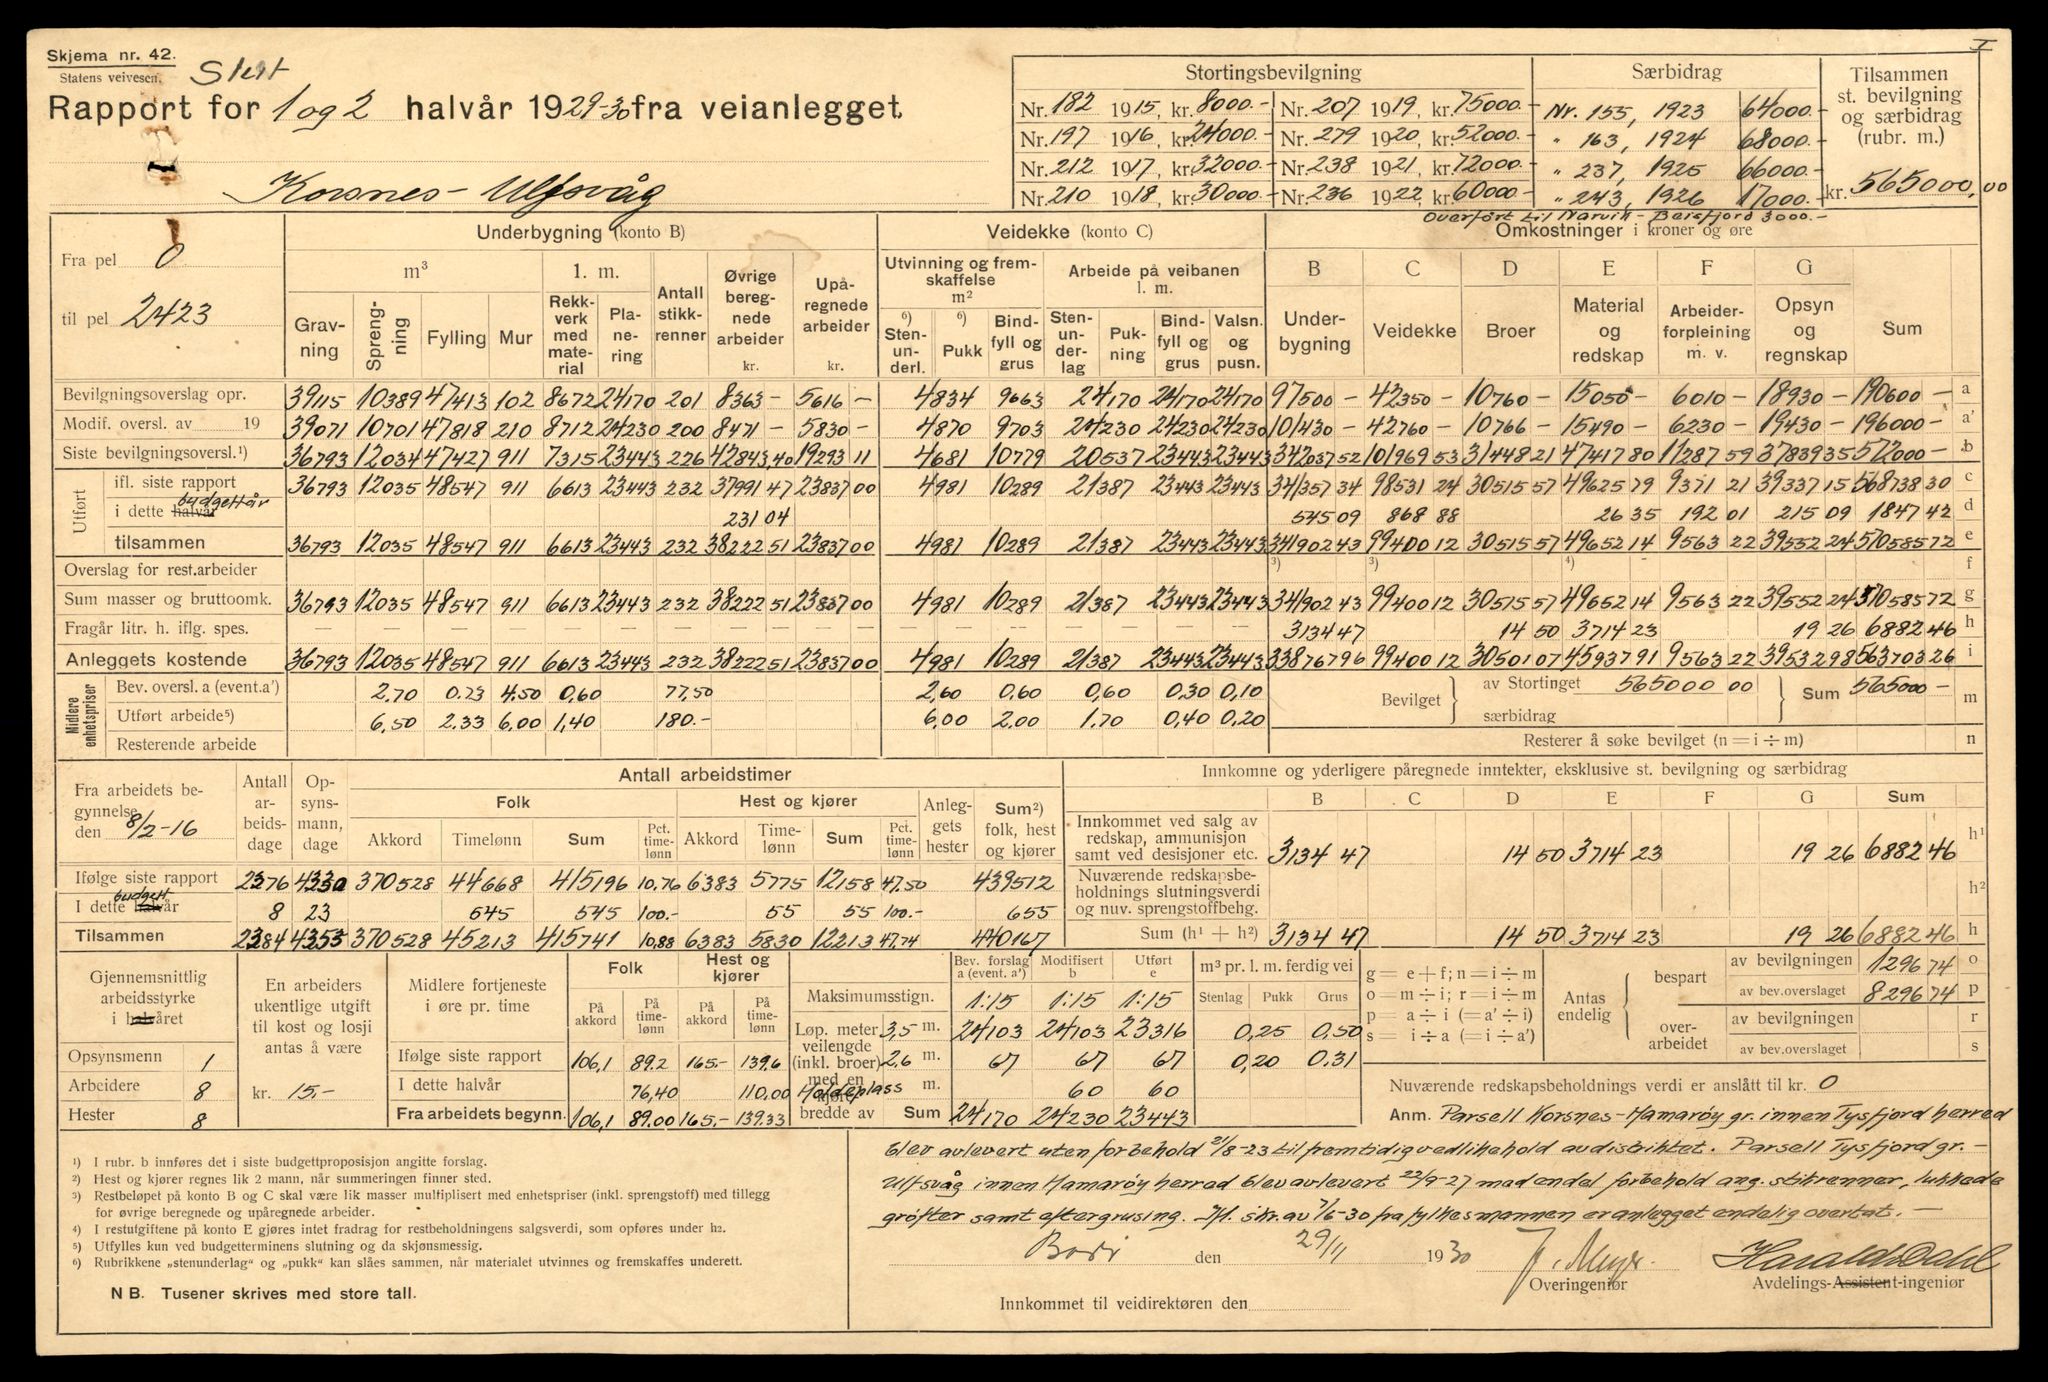 Skjema nr. 42.
Statens veivesen.
Slutt
Rapport for 1 og 2 halvår 1929-30 fra veianlegget
Korsnes - Ulfsvåg
I
Stortingsbevilgning
Nr. 182 1915, kr. 8000.- Nr. 207 1919, kr. 75000.-
Nr. 197 1916, kr. 24000.- Nr. 279 1920, kr. 52000.-
Nr. 212 1917, kr. 32000.- Nr. 238 1921, kr. 72000.-
Nr. 210 1918, kr. 30000.- Nr. 236 1922, kr. 60000.-
Særbidrag
Nr. 155, 1923 64000.-
" 163, 1924 68000.-
" 237, 1925 66000.-
" 243, 1926 17000.-
Overført til Narvik - Beisfjord 3000.-
Tilsammen
st. bevilgning
og særbidrag
(rubr. m.)
kr. 565000,00
Fra pel 0
til pel 2423
Underbygning (konto B)
m³ l. m.
Gravning Sprengning Fylling Mur Rekkverk med material Planering Antall stikkrenner Øvrige beregnede arbeider kr. Upåregnede arbeider kr.
Veidekke (konto C)
Utvinning og fremskaffelse m² Arbeide på veibanen l. m.
⁶) Stenunderl. ⁶) Pukk Bindfyll og grus Stenunderlag Pukning Bindfyll og grus Valsn. og pusn.
Omkostninger i kroner og øre
B C D E F G
Underbygning Veidekke Broer Material og redskap Arbeiderforpleining m. v. Opsyn og regnskap Sum
Bevilgningsoverslag opr. 39115 10389 47413 102 8672 24170 201 8363 - 5616 - 4834 9663 24170 24170 24170 97500 - 42350 - 10760 - 15050 - 6010 - 18930 - 190600 - a
Modif. oversl. av 19 39071 10701 47818 210 8712 24230 200 8471 - 5830 - 4870 9703 24230 24230 24230 101430 - 42760 - 10766 - 15490 - 6230 - 19430 - 196000 - a'
Siste bevilgningsoversl.¹) 36793 12034 47427 911 7315 23443 226 42843,40 19293 11 4681 10779 20537 23443 23443 342037 52 101969 53 31448 21 47417 80 11287 59 37839 35 572000 - b
Utført
ifl. siste rapport 36793 12035 48547 911 6613 23443 232 37991 47 23837 00 4981 10289 21387 23443 23443 341357 34 98531 24 30515 57 49625 79 9371 21 39337 15 568738 30 c
budgettår
i dette halvår 231 04 545 09 868 88 26 35 192 01 215 09 1847 42 d
tilsammen 36793 12035 48547 911 6613 23443 232 38222 51 23837 00 4981 10289 21387 23443 23443 341902 43 99400 12 30515 57 49652 14 9563 22 39552 24 570585 72 e
Overslag for rest.arbeider ³) ³) f
Sum masser og bruttoomk. 36793 12035 48547 911 6613 23443 232 38222 51 23837 00 4981 10289 21387 23443 23443 341902 43 99400 12 30515 57 49652 14 9563 22 39552 24 570585 72 g
Fragår litr. h. iflg. spes. — — — — — — — — — — — — — — 3134 47 14 50 3714 23 19 26 6882 46 h
Anleggets kostende 36793 12035 48547 911 6613 23443 232 38222 51 23837 00 4981 10289 21387 23443 23443 338767 96 99400 12 30501 07 45937 91 9563 22 39532 98 563703 26 i
Midlere enhetspriser
Bev. oversl. a (event.a') 2.70 0.73 4.50 0,60 77,50 2,60 0,60 0,60 0,30 0,10
Utført arbeide⁵) 6,50 2.33 6,00 1,40 180.- 6,00 2.00 1.70 0,40 0,20
Resterende arbeide
Bevilget av Stortinget 565000 00 Sum 565000 - m
særbidrag
Resterer å søke bevilget (n = i ÷ m) n
Fra arbeidets begynnelse den 8/2-16
Antall arbeidsdage Opsynsmann, dage
Antall arbeidstimer
Folk Hest og kjører Anleggets hester Sum²) folk, hest og kjører
Akkord Timelønn Sum Pct. timelønn Akkord Timelønn Sum Pct. timelønn
Ifølge siste rapport 2376 4330 370528 44668 415196 10.76 6383 5775 12158 47.50 439512
budgett
I dette halvår 8 23 545 545 100.- 55 55 100.- 655
Tilsammen 2384 4353 370528 45213 415741 10,88 6383 5830 12213 47,74 440167
Innkomne og yderligere påregnede inntekter, eksklusive st. bevilgning og særbidrag
B C D E F G Sum
Innkommet ved salg av
redskap, ammunisjon
samt ved desisjoner etc. 3134 47 14 50 3714 23 19 26 6882 46 h¹
Nuværende redskapsbe-
holdnings slutningsverdi
og nuv. sprengstoffbehg. h²
Sum (h¹ + h²) 3134 47 14 50 3714 23 19 26 6882 46 h
Gjennemsnittlig
arbeidsstyrke
i halvåret
Opsynsmenn 1
Arbeidere 8
Hester 8
En arbeiders
ukentlige utgift
til kost og losji
antas å være
kr. 15,-
Midlere fortjeneste
i øre pr. time
Folk Hest og kjører
På akkord På timelønn På akkord På timelønn
Ifølge siste rapport 106,1 89.2 165.- 139,6
I dette halvår 76,40 110,00
Fra arbeidets begynn. 106,1 89.00 165,- 139.33
Bev. forslag a (event. a') Modifisert b Utført e
Maksimumsstign. 1:15 1:15 1:15
Løp. meter veilengde (inkl. broer) med en kjørebredde av
3,5 m. 24103 24103 23316
2,6 m. 67 67 67
Holdeplass m. 60 60
Sum 24170 24230 23443
m³ pr. l. m. ferdig vei
Stenlag Pukk Grus
0,25 0,50
0,20 0.31
g = e + f; n = i ÷ m
o = m ÷ i; r = i ÷ m
p = a ÷ i (= a' ÷ i)
s = i ÷ a (= i ÷ a')
Antas endelig
bespart av bevilgningen 1296 74 o
av bev.overslaget 8296 74 p
overarbeidet av bevilgningen r
av bev.overslaget s
Nuværende redskapsbeholdnings verdi er anslått til kr. 0
Anm. Parsell Korsnes-Hamarøy gr. innen Tysfjord herred
blev avlevert uten forbehold 21/8-23 til fremtidig vedlikehold av distriktet. Parsell Tysfjord gr. -
Ulfsvåg innen Hamarøy herred blev avlevert 22/9-27 med endel forbehold ang. stikrenner, lukkede
grøfter samt eftergrusing. Ifl. skr. av 7/6-30 fra fylkesmannen er anlegget endelig overtat. —
Bodø den 29/11 1930
J. Meyer. Harald Dahl
Overingeniør Avdelings-Assistent-ingeniør
Innkommet til veidirektøren den
¹) I rubr. b innføres det i siste budgettproposisjon angitte forslag.
²) Hest og kjører regnes lik 2 mann, når summeringen finner sted.
³) Restbeløpet på konto B og C skal være lik masser multiplisert med enhetspriser (inkl. sprengstoff) med tillegg
for øvrige beregnede og upåregnede arbeider.
⁴) I restutgiftene på konto E gjøres intet fradrag for restbeholdningens salgsverdi, som opføres under h2.
⁵) Utfylles kun ved budgetterminens slutning og da skjønsmessig.
⁶) Rubrikkene „stenunderlag" og „pukk" kan slåes sammen, når materialet utvinnes og fremskaffes underett.
NB. Tusener skrives med store tall.